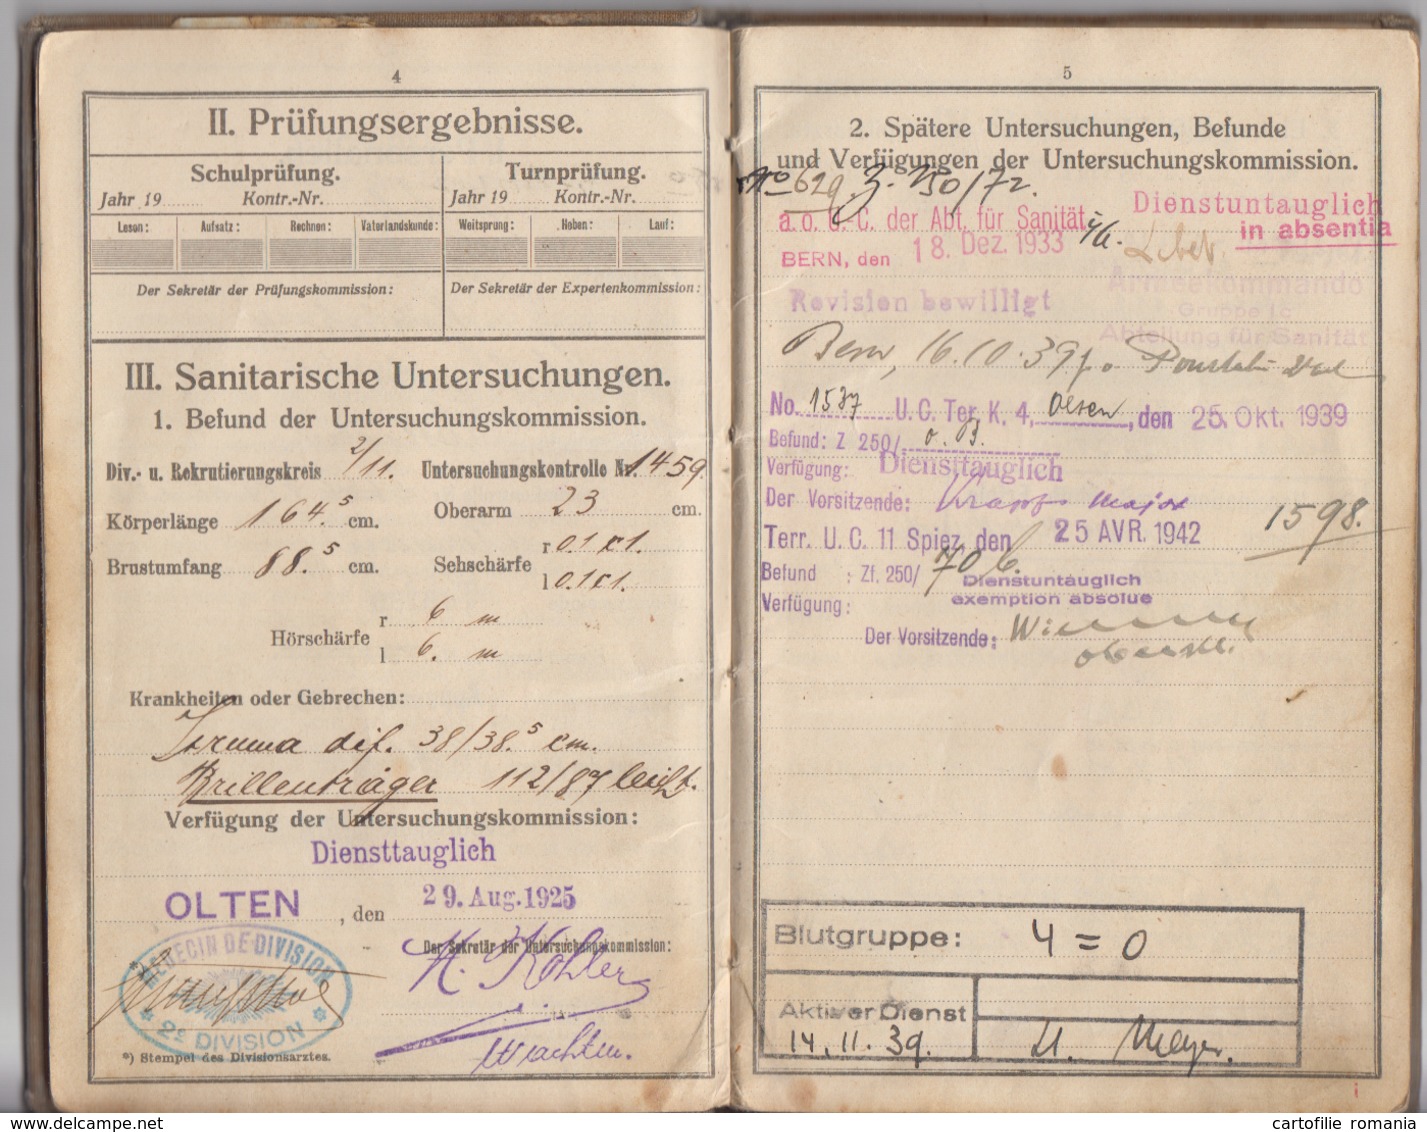 4
II. Prüfungsergebnisse.
Schulprüfung.
Jahr 19 Kontr.-Nr.
Lesen: Aufsatz: Rechnen: Vaterlandskunde:
Der Sekretär der Prüfungskommission:
Turnprüfung.
Jahr 19 Kontr.-Nr.
Weitsprung: Heben: Lauf:
Der Sekretär der Expertenkommission:
III. Sanitarische Untersuchungen.
1. Befund der Untersuchungskommission.
Div.- u. Rekrutierungskreis 2/11. Untersuchungskontrolle Nr. 1459.
Körperlänge 164.5 cm. Oberarm 23 cm.
Brustumfang 88.5 cm. Sehschärfe r 0.1 c1.
l 0.1 c1.
Hörschärfe r 6 m
l 6. m
Krankheiten oder Gebrechen:
Struma dif. 38/38.5 cm.
Brillenträger 112/87 leicht.
Verfügung der Untersuchungskommission:
Diensttauglich
OLTEN, den 29. Aug. 1925
Der Sekretär der Untersuchungskommission:
H. Kohler
Wachtm.
*)
MEDECIN DE DIVISION
2e DIVISION
*) Stempel des Divisionsarztes.
5
2. Spätere Untersuchungen, Befunde
und Verfügungen der Untersuchungskommission.
No 629 Z. 250/72.
a.o. U.C. der Abt. für Sanität
BERN, den 18. Dez. 1933
Dienstuntauglich
in absentia
Revision bewilligt
Armeekommando
Gruppe Ic
Abteilung für Sanität
Bern, 16.10.39
No. 1537 U.C. Ter. K. 4, Olten, den 25. Okt. 1939
Befund: Z 250/ o. B.
Verfügung: Diensttauglich
Der Vorsitzende: Major
Terr. U.C. 11 Spiez, den 25 AVR. 1942 1598.
Befund : Zf. 250/ 70 b.
Verfügung: Dienstuntauglich
exemption absolue
Der Vorsitzende:
Oberstl.
Blutgruppe: 4 = 0
Aktiver Dienst
14. 11. 39. H. Meyer.
www.delcampe.net
cartofilie romania